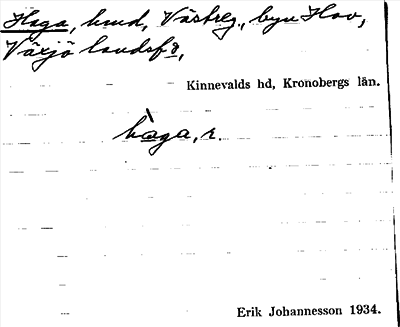 Haga, hmd, Västreg., byn Hov,
Växjö landsfs,
Kinnevalds hd, Kronobergs län.
hàga, r.
Erik Johannesson 1934.